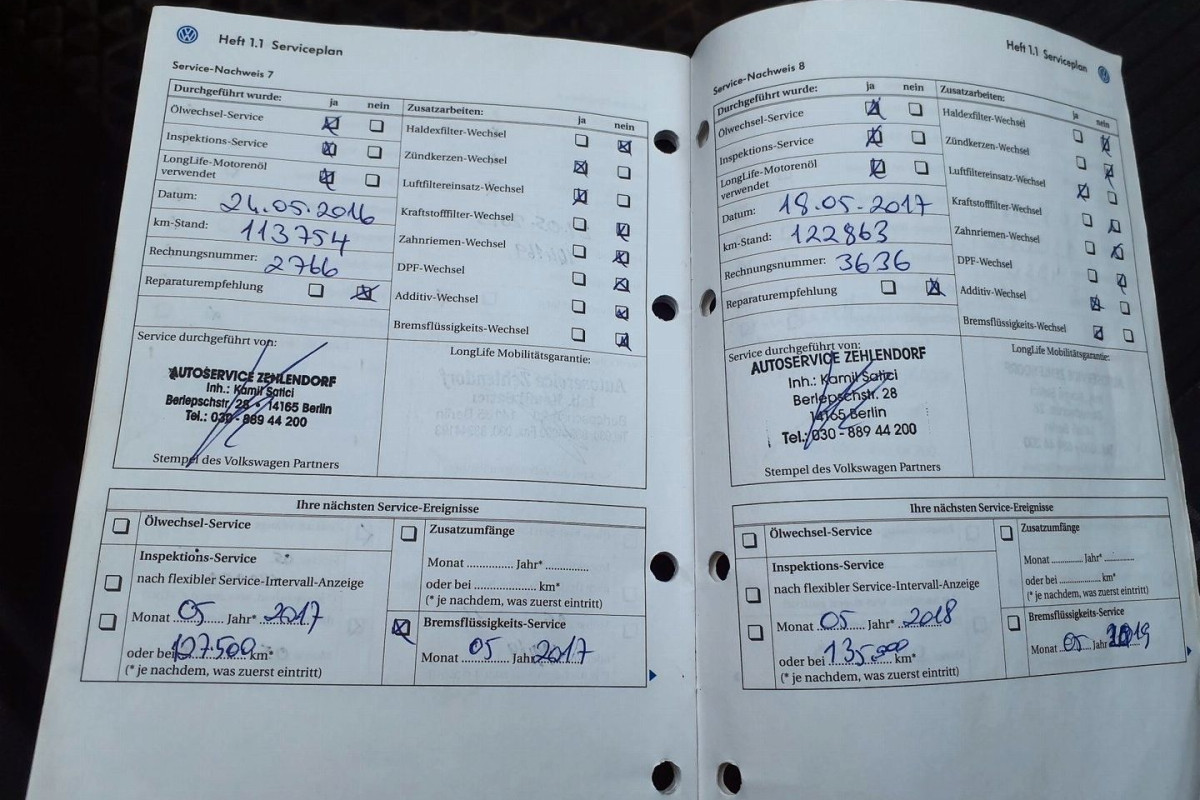 Heft 1.1 Serviceplan
Service-Nachweis 7
Durchgeführt wurde: ja nein
Ölwechsel-Service
Inspektions-Service
LongLife-Motorenöl
verwendet
Datum: 24.05.2016
km-Stand: 113754
Rechnungsnummer: 2766
Reparaturempfehlung
Zusatzarbeiten:
ja nein
Haldexfilter-Wechsel
Zündkerzen-Wechsel
Luftfiltereinsatz-Wechsel
Kraftstofffilter-Wechsel
Zahnriemen-Wechsel
DPF-Wechsel
Additiv-Wechsel
Bremsflüssigkeits-Wechsel
Service durchgeführt von:
AUTOSERVICE ZEHLENDORF
Inh.: Kamil Satici
Berlepschstr. 28 • 14165 Berlin
Tel.: 030 - 889 44 200
Stempel des Volkswagen Partners
LongLife Mobilitätsgarantie:
Ihre nächsten Service-Ereignisse
Ölwechsel-Service
Inspektions-Service
nach flexibler Service-Intervall-Anzeige
Monat 05 Jahr* 2017
oder bei 127.500 km*
(* je nachdem, was zuerst eintritt)
Zusatzumfänge
Monat .............. Jahr* .............
oder bei .................. km*
(* je nachdem, was zuerst eintritt)
Bremsflüssigkeits-Service
Monat 05 Jahr 2017
Heft 1.1 Serviceplan
Service-Nachweis 8
Durchgeführt wurde: ja nein
Ölwechsel-Service
Inspektions-Service
LongLife-Motorenöl
verwendet
Datum: 18.05.2017
km-Stand: 122863
Rechnungsnummer: 3636
Reparaturempfehlung
Zusatzarbeiten:
ja nein
Haldexfilter-Wechsel
Zündkerzen-Wechsel
Luftfiltereinsatz-Wechsel
Kraftstofffilter-Wechsel
Zahnriemen-Wechsel
DPF-Wechsel
Additiv-Wechsel
Bremsflüssigkeits-Wechsel
Service durchgeführt von:
AUTOSERVICE ZEHLENDORF
Inh.: Kamil Satici
Berlepschstr. 28
14165 Berlin
Tel.: 030 - 889 44 200
Stempel des Volkswagen Partners
LongLife Mobilitätsgarantie:
Ihre nächsten Service-Ereignisse
Ölwechsel-Service
Inspektions-Service
nach flexibler Service-Intervall-Anzeige
Monat 05 Jahr* 2018
oder bei 135.000 km*
(* je nachdem, was zuerst eintritt)
Zusatzumfänge
Monat ........... Jahr* ...........
oder bei .................. km*
(* je nachdem, was zuerst eintritt)
Bremsflüssigkeits-Service
Monat 05 Jahr 2019